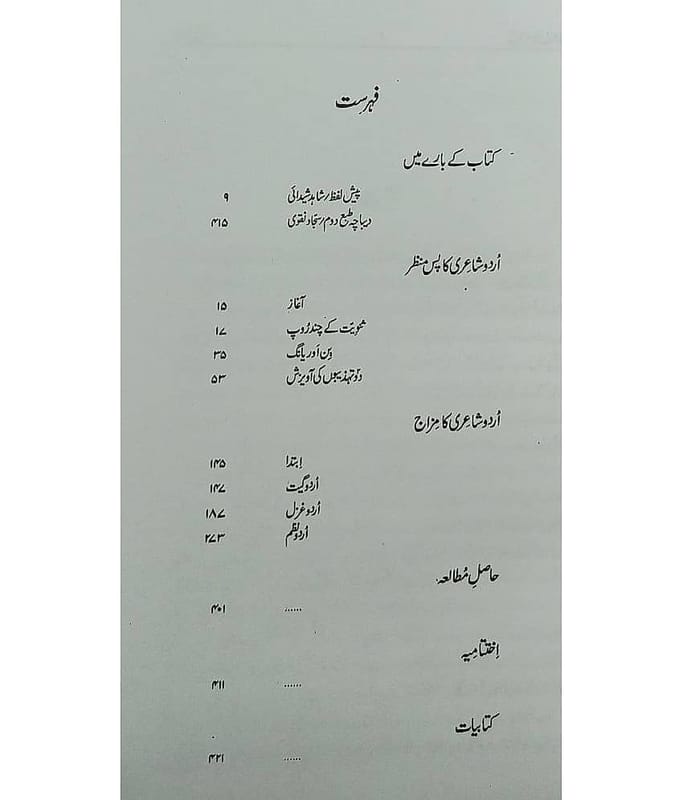 فہرست
کتاب کے بارے میں
پیش لفظ/شاہد شیدائی ۹
دیباچہ طبع دوم/سجاد نقوی ۴۱۵
اُردو شاعری کا پس منظر
آغاز ۱۵
ثنویّت کے چند رُوپ ۱۷
یِن اَور یانگ ۳۵
دَو تہذیبوں کی آویزش ۵۳
اُردو شاعری کا مِزاج
اِبتدا ۱۴۵
اُردو گیت ۱۴۷
اُردو غزل ۱۸۷
اُردو نظم ۲۷۳
حاصلِ مُطالعہ
...... ۴۰۱
اِختتامِیہ
...... ۴۱۱
کتابیات
...... ۴۲۱